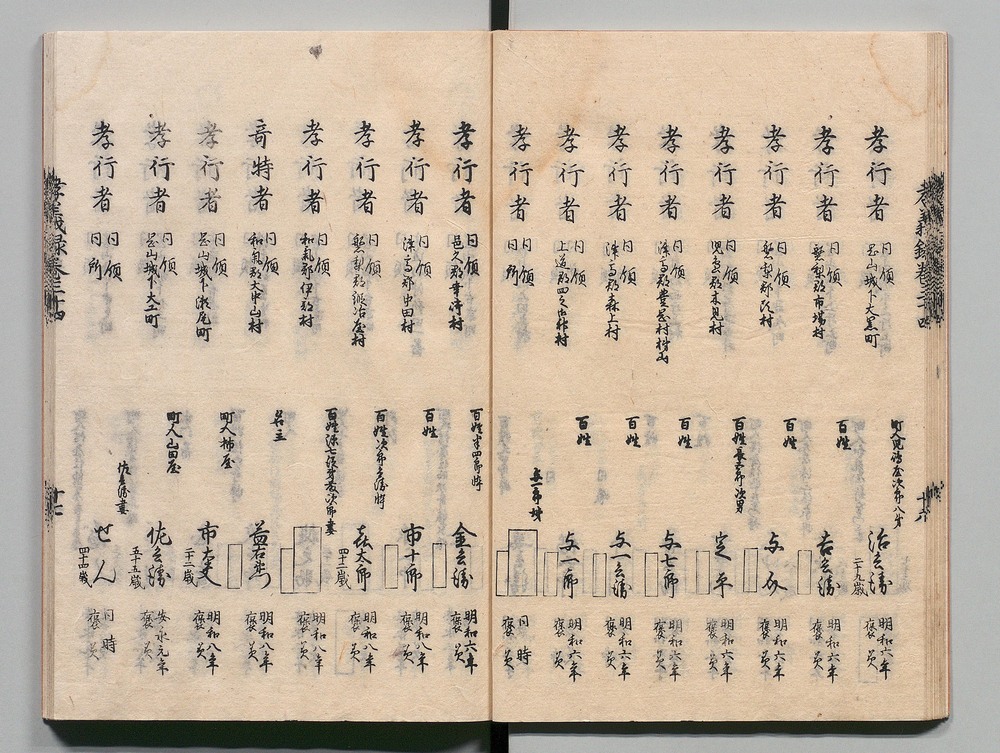 孝行者
同領
岡山城下大黒町
町人児嶋屋次郎八弟
治兵衛
二十九歳
明和六年
褒美
孝行者
同領
磐梨郡市場村
百姓
吉兵衛
明和六年
褒美
孝行者
同領
百姓
明和六年
褒美
孝行者
同領
児嶋郡木見村
定平
明和六年
褒美
孝行者
同領
百姓
与七郎
明和六年
褒美
孝行者
同領
津高郡森上村
百姓
与一兵衛
明和六年
褒美
孝行者
同領
百姓
与一郎
明和六年
褒美
孝行者
同領
同所
与一郎妹
同時
褒美
孝行者
同領
百姓半四郎忰
金兵衛
明和六年
褒美
孝行者
同領
津高郡中田村
百姓
市十郎
明和八年
褒美
孝行者
同領
磐梨郡鍛冶屋村
喜太郎
四十二歳
明和八年
褒美
孝行者
同領
和気郡伊部村
明和八年
褒美
奇特者
同領
和気郡大中山村
名主
益右衛門
明和八年
褒美
孝行者
同領
岡山城下瀬尾町
町人柿屋
市太夫
二十二歳
明和八年
褒美
孝行者
同領
岡山城下大工町
町人山田屋
佐兵衛
五十五歳
安永元年
褒美
孝行者
同領
同所
佐兵衛妻
せん
四十四歳
同時
褒美
孝義録巻三十四
十六
孝義録巻三十四
十七